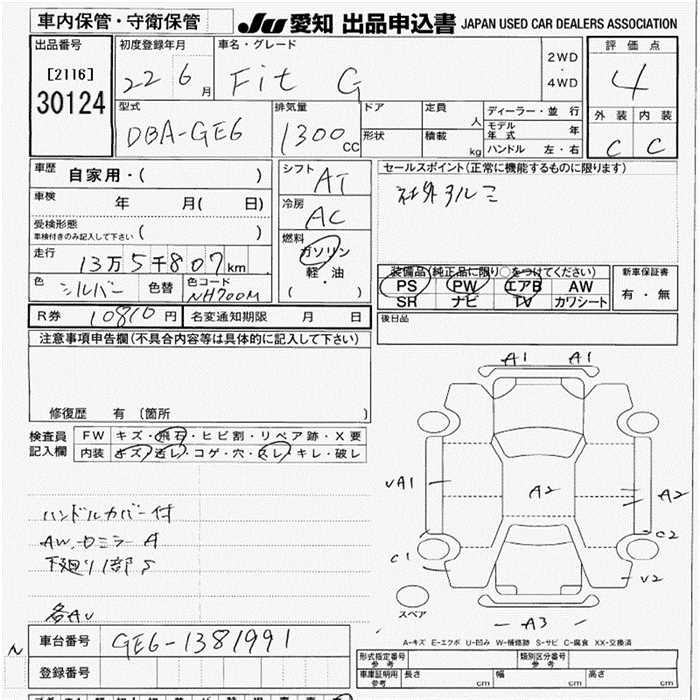 車内保管・守衛保管
JU 愛知 出品申込書 JAPAN USED CAR DEALERS ASSOCIATION
出品番号 初度登録年月 車名・グレード 評価点
[2116] 22 6月 Fit G 2WD・4WD 4
30124
型式 排気量 ドア 定員 人 ディーラー・並 行 外装 内装
DBA-GE6 1300cc 形状 積載 kg モデル年式 年 C C
ハンドル 左・右
車歴 自家用・( ) シフト AT セールスポイント(正常に機能するものに限ります)
車検 年 月( 日) 冷房 AC 社外アルミ
受検形態 車検付きのみ記入して下さい ( )
燃料 ガソリン 軽・油 ( ・ )
走行 13万5千807km
装備品(純正品に限り○をつけてください) 新車保証書
色 シルバー 色替 色コード NH700M PS PW エアB AW 有・無
SR ナビ TV カワシート
R券 10810円 名変通知期限 月 日 後日品
注意事項申告欄(不具合内容等は具体的に記入して下さい)
修復歴 有 (箇所 )
検査員記入欄 FW キズ・飛石・ヒビ割・リペア跡・X要
内装 キズ・汚レ・コゲ・穴・スレ・キレ・破レ
A1 A1
vA1 A2 A2
ハンドルカバー付
C2
C1
V2
スペア
A3
A-キズ E-エクボ U-凹み W-補修跡 S-サビ C-腐食 XX-交換済
N 車台番号 GE6-1381991
登録番号
形式指定番号 参考 類別区分番号 参考
車庫証明用 参考 長さ cm 幅 cm 高さ cm